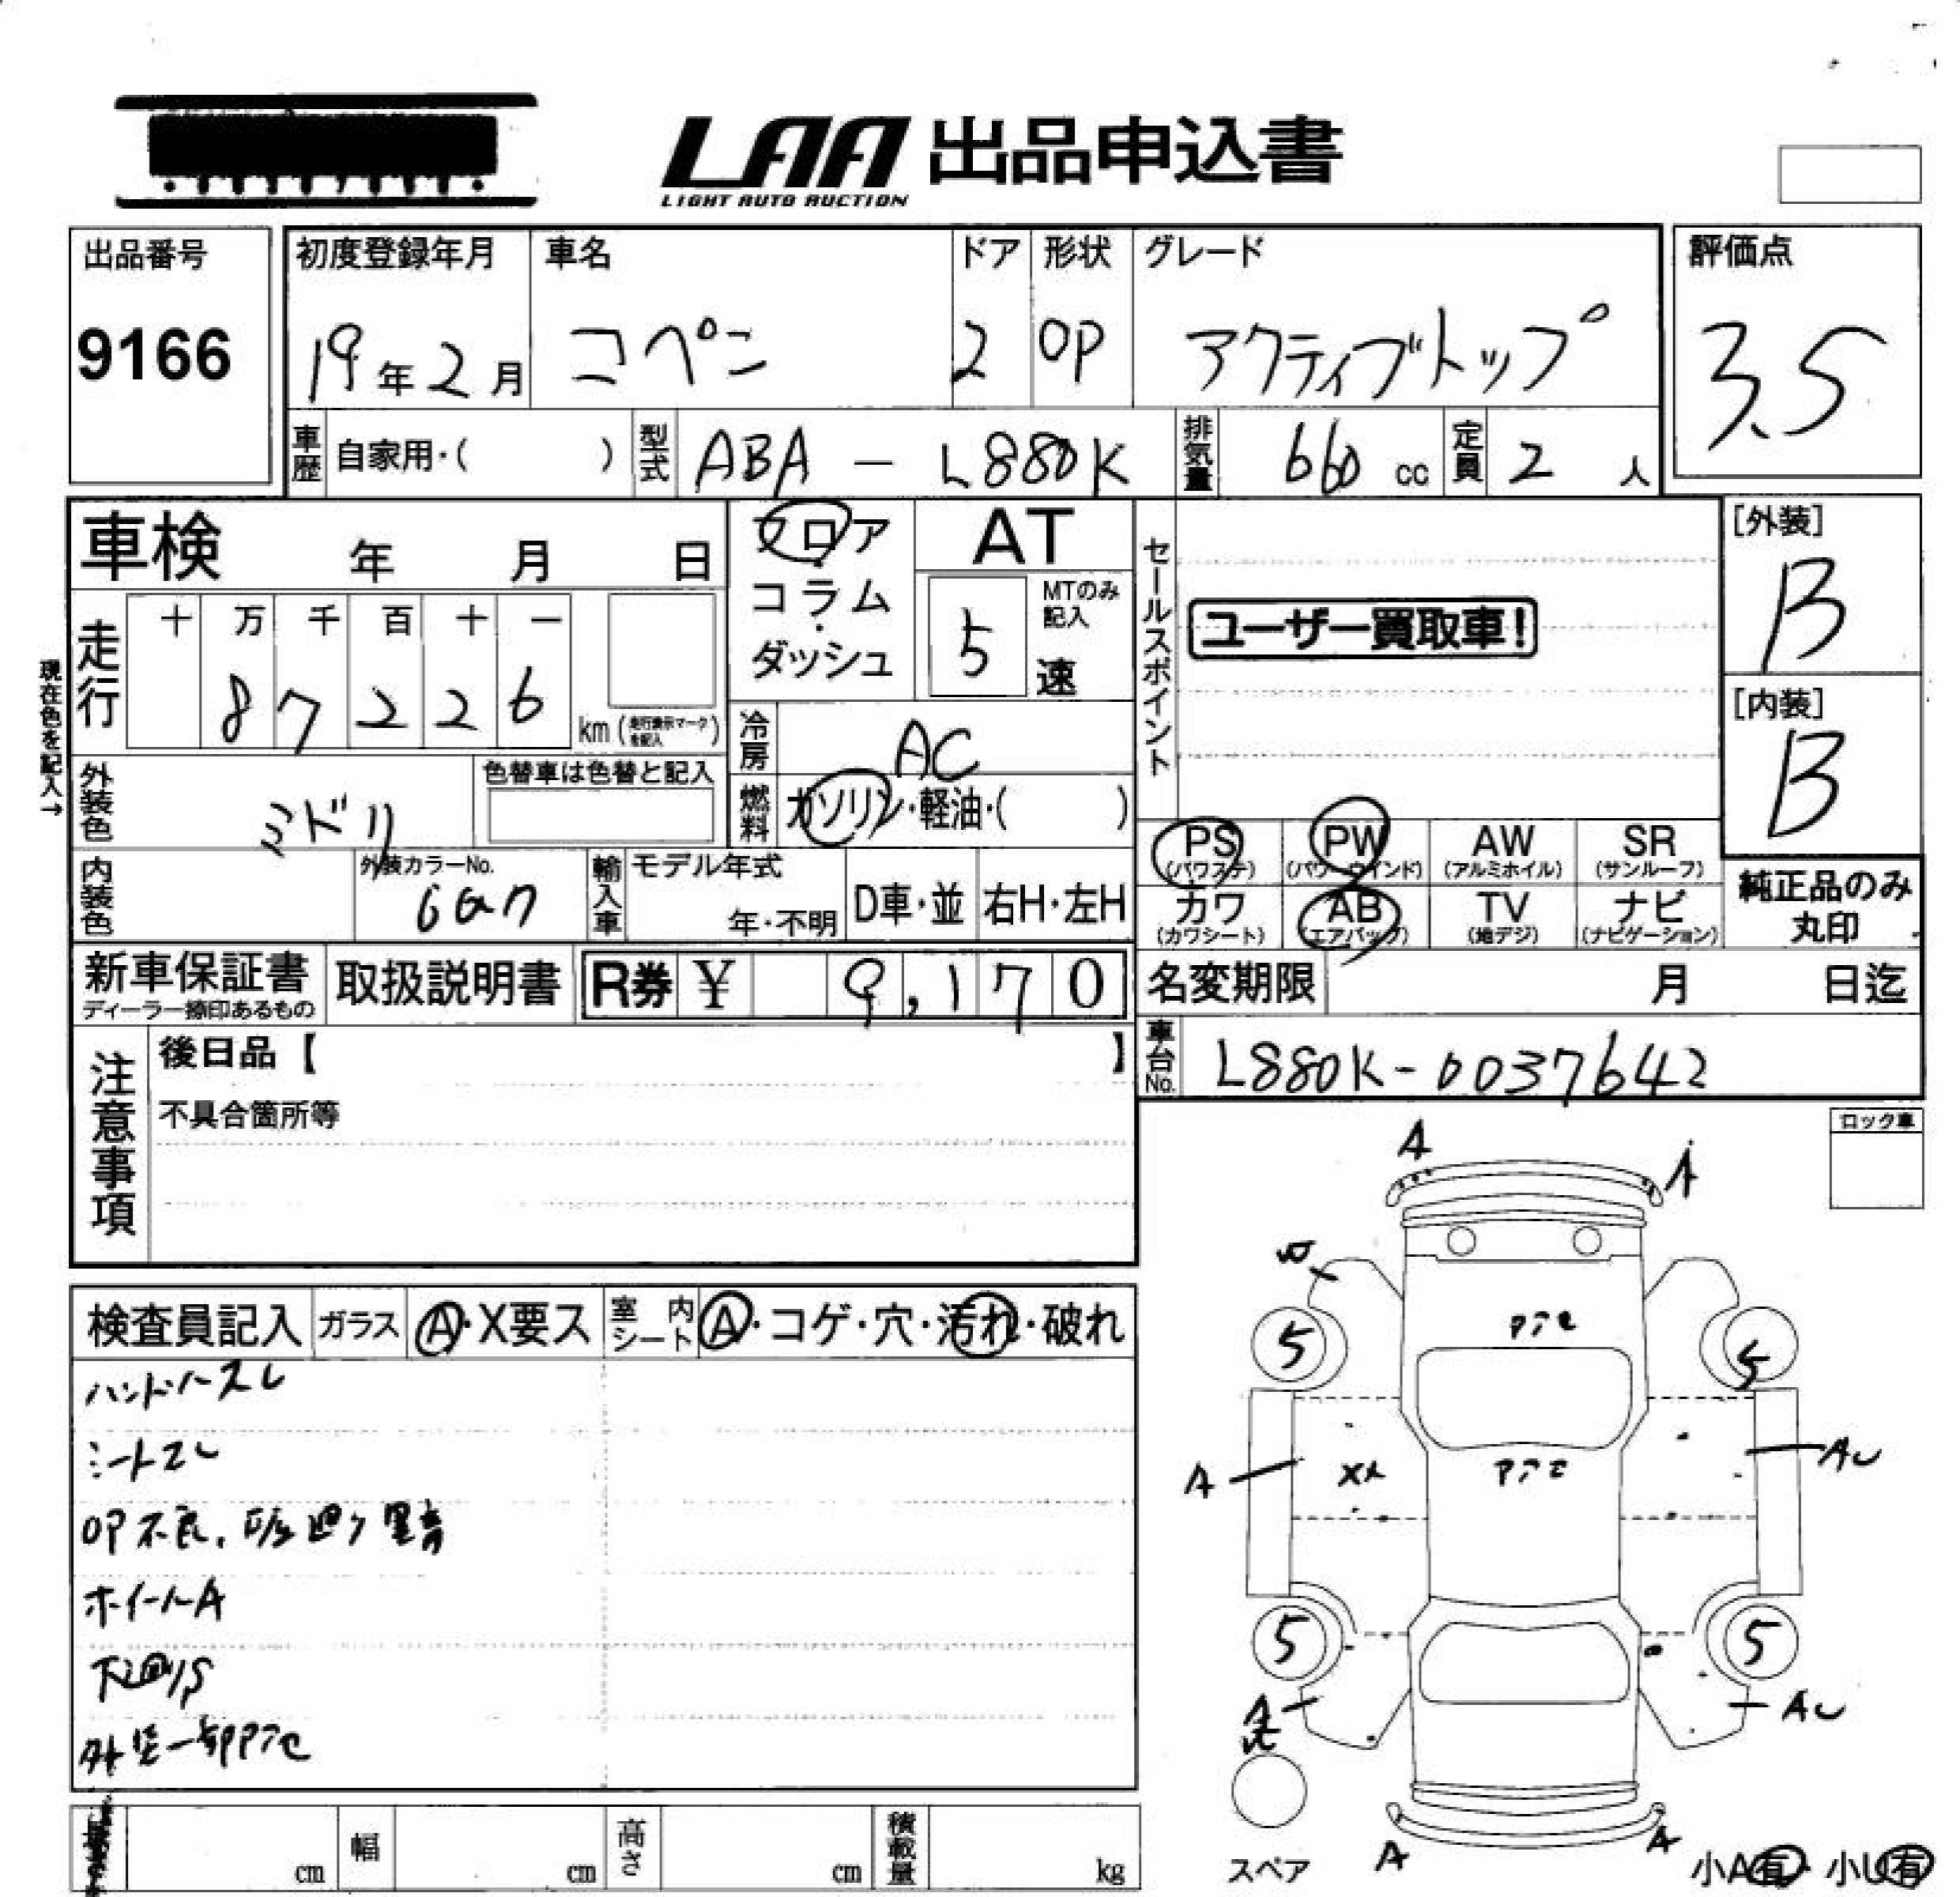 LAA 出品申込書
LIGHT AUTO AUCTION
出品番号
9166
初度登録年月
19年2月
車名
コペン
ドア
2
形状
OP
グレード
アクティブトップ
評価点
3.5
車歴 自家用・( )
型式 ABA - L880K
排気量 660 cc
定員 2 人
車検 年 月 日
フロア・コラム・ダッシュ
AT
MTのみ記入
5 速
セールスポイント
ユーザー買取車!
[外装]
B
[内装]
B
現在色を記入→
走行
十 万 千 百 十 一
8 7 2 2 6
km (走行表示マークを記入)
冷房 AC
外装色 ミドリ
色替車は色替と記入
燃料 ガソリン・軽油・( )
内装色
外装カラーNo.
輸入車 モデル年式
年・不明
D車・並
右H・左H
PS (パワステ)
PW (パワーウインド)
AW (アルミホイル)
SR (サンルーフ)
カワ (カワシート)
AB (エアバッグ)
TV (地デジ)
ナビ (ナビゲーション)
純正品のみ丸印
新車保証書
ディーラー捺印あるもの
取扱説明書
R券 ¥ 9,170
名変期限 月 日迄
車台No. L880K-0037642
注意事項
後日品【 】
不具合箇所等
ロック車
検査員記入
ガラス A・X要ス
室内シート A・コゲ・穴・汚れ・破れ
ハンドルスレ
シートスレ
OP不良.
ホイールA
下廻りS
外装一部Pアセ
A A
Pアセ
5 5
A XX Pアセ AU
5 5
A AU
A A
スペア
小A有・小U有
cm
幅 cm
高さ cm
積載量 kg